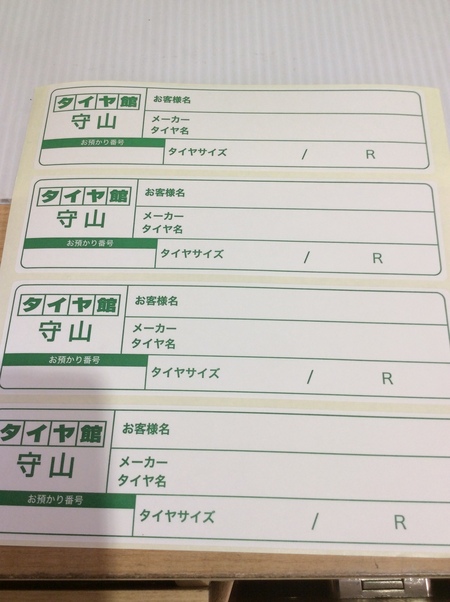 タイヤ館 お客様名
守山 メーカー
タイヤ名
お預かり番号
タイヤサイズ / R
タイヤ館 お客様名
守山 メーカー
タイヤ名
お預かり番号
タイヤサイズ / R
タイヤ館 お客様名
守山 メーカー
タイヤ名
お預かり番号
タイヤサイズ / R
タイヤ館 お客様名
守山 メーカー
タイヤ名
お預かり番号
タイヤサイズ / R